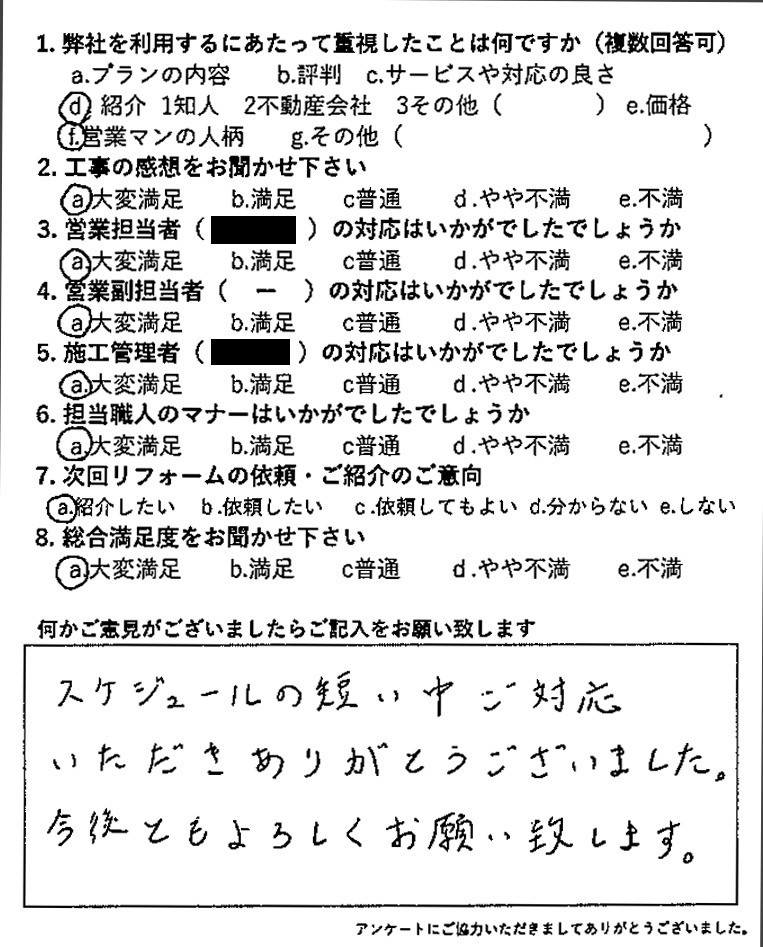 1. 弊社を利用するにあたって重視したことは何ですか（複数回答可）
a.プランの内容 b.評判 c.サービスや対応の良さ
d. 紹介 1知人 2不動産会社 3その他（ ） e.価格
f.営業マンの人柄 g.その他（ ）
2. 工事の感想をお聞かせ下さい
a.大変満足 b.満足 c普通 d.やや不満 e.不満
3. 営業担当者（ ）の対応はいかがでしたでしょうか
a.大変満足 b.満足 c普通 d.やや不満 e.不満
4. 営業副担当者（ ー ）の対応はいかがでしたでしょうか
a.大変満足 b.満足 c普通 d.やや不満 e.不満
5. 施工管理者（ ）の対応はいかがでしたでしょうか
a.大変満足 b.満足 c普通 d.やや不満 e.不満
6. 担当職人のマナーはいかがでしたでしょうか
a.大変満足 b.満足 c普通 d.やや不満 e.不満
7. 次回リフォームの依頼・ご紹介のご意向
a.紹介したい b.依頼したい c.依頼してもよい d.分からない e.しない
8. 総合満足度をお聞かせ下さい
a.大変満足 b.満足 c普通 d.やや不満 e.不満
何かご意見がございましたらご記入をお願い致します
スケジュールの短い中ご対応
いただきありがとうございました。
今後ともよろしくお願い致します。
アンケートにご協力いただきましてありがとうございました。